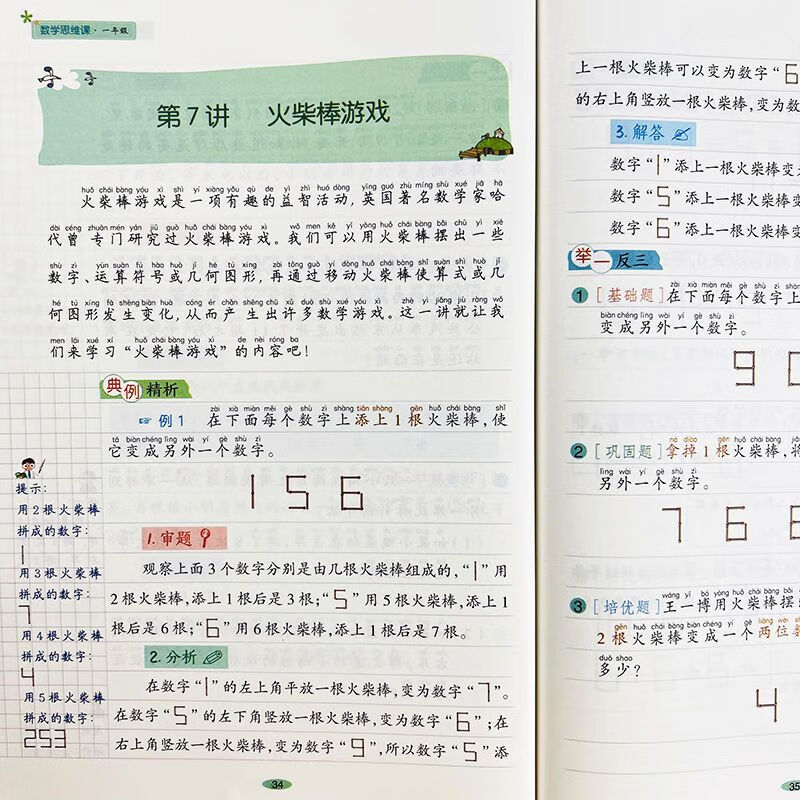 数学思维课·一年级
第7讲 火柴棒游戏
huǒ chái bàng yóu xì shì yí xiàng yǒu qù de yì zhì huó dòng yīng guó zhù míng shù xué jiā hā
火柴棒游戏是一项有趣的益智活动,英国著名数学家哈
dài céng zhuān mén yán jiū guò huǒ chái bàng yóu xì wǒ men kě yǐ yòng huǒ chái bàng bǎi chū yì xiē
代曾 专门研究过火柴棒游戏。我们可以用火柴棒摆出一些
shù zì yùn suàn fú hào huò jǐ hé tú xíng zài tōng guò yí dòng huǒ chái bàng shǐ suàn shì huò jǐ
数字、运算符号或几何图形,再通过移动火柴棒使算式或几
hé tú xíng fā shēng biàn huà cóng ér chǎn shēng chū xǔ duō shù xué yóu xì zhè yì jiǎng jiù ràng wǒ
何图形发生变化,从而产 生出许多数学游戏。这一讲就让我
men lái xué xí huǒ chái bàng yóu xì de nèi róng ba
们来学习“火柴棒游戏”的内容吧!
典例精析
zài xià miàn měi gè shù zì shàng tiān shàng gēn huǒ chái bàng shǐ
例1 在下面每个数字上添上1根火柴棒,使
tā biàn chéng lìng wài yí gè shù zì
它变成另外一个数字。
1 5 6
1.审题
观察上面3个数字分别是由几根火柴棒组成的,“1”用
2根火柴棒,添上1根后是3根;“5”用5根火柴棒,添上1
根后是6根;“6”用6根火柴棒,添上1根后是7根。
2.分析
在数字“1”的左上角平放一根火柴棒,变为数字“7”。
在数字“5”的左下角竖放一根火柴棒,变为数字“6”;在
右上角竖放一根火柴棒,变为数字“9”,所以数字“5”添
提示:
用2根火柴棒
拼成的数字:
1
用3根火柴棒
拼成的数字:
7
用4根火柴棒
拼成的数字:
4
用5根火柴棒
拼成的数字:
253
34
上一根火柴棒可以变为数字“6
的右上角竖放一根火柴棒,变为数
3.解答
数字“1”添上一根火柴棒变
数字“5”添上一根火柴棒变
数字“6”添上一根火柴棒变
举一反三
zài xià miàn měi gè shù zì shàng
1 [基础题]在下面每个数字上
biàn chéng lìng wài yí gè shù zì
变成另外一个数字。
9 0
ná diào gēn huǒ chái bàng
2 [巩固题]拿掉1根火柴棒,将
lìng wài yí gè shù zì
另外一个数字。
7 6 8
wáng yì bó yòng huǒ chái bàng bǎi
3 [培优题]王一博用火柴棒摆
gēn huǒ chái bàng biàn chéng yí gè liǎng wèi
2根火柴棒变成一个两位数
duō shao
多少?
4
35